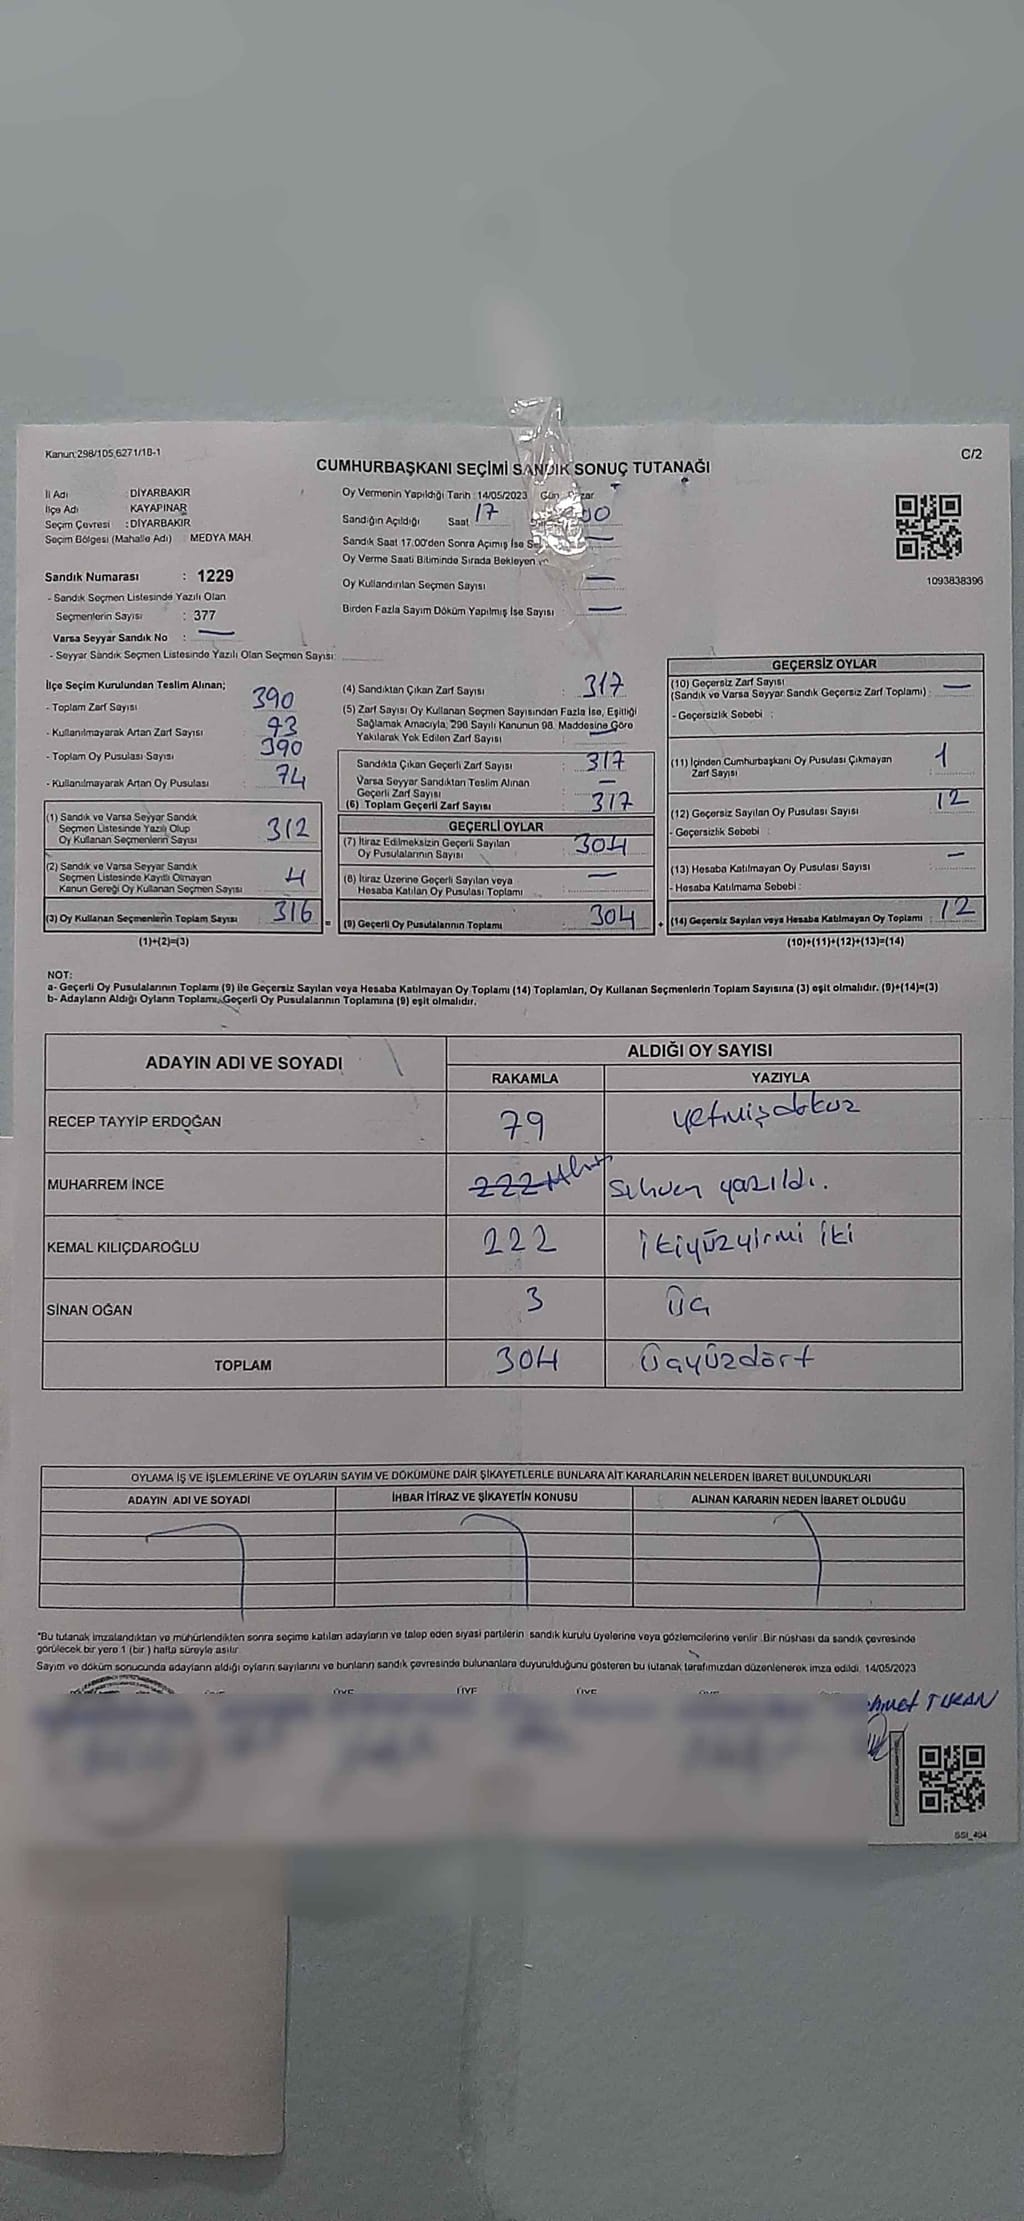 Kanun;298/105,6271/18-1
C/2
CUMHURBAŞKANI SEÇİMİ SANDIK SONUÇ TUTANAĞI
İl Adı : DİYARBAKIR
İlçe Adı : KAYAPINAR
Seçim Çevresi : DİYARBAKIR
Seçim Bölgesi (Mahalle Adı) : MEDYA MAH.
Oy Vermenin Yapıldığı Tarih : 14/05/2023 Gün
Sandığın Açıldığı Saat 17 00
Sandık Saat 17.00'den Sonra Açımış İse
Oy Verme Saati Bitiminde Sırada Bekleyen ve
Oy Kullandırılan Seçmen Sayısı : —
Birden Fazla Sayım Döküm Yapılmış İse Sayısı : —
1093838396
Sandık Numarası : 1229
- Sandık Seçmen Listesinde Yazılı Olan
Seçmenlerin Sayısı : 377
Varsa Seyyar Sandık No : —
- Seyyar Sandık Seçmen Listesinde Yazılı Olan Seçmen Sayısı:
İlçe Seçim Kurulundan Teslim Alınan;
- Toplam Zarf Sayısı : 390
- Kullanılmayarak Artan Zarf Sayısı : 73
- Toplam Oy Pusulası Sayısı : 390
- Kullanılmayarak Artan Oy Pusulası : 74
(1) Sandık ve Varsa Seyyar Sandık
Seçmen Listesinde Yazılı Olup
Oy Kullanan Seçmenlerin Sayısı 312
(2) Sandık ve Varsa Seyyar Sandık
Seçmen Listesinde Kayıtlı Olmayan
Kanun Gereği Oy Kullanan Seçmen Sayısı 4
(3) Oy Kullanan Seçmenlerin Toplam Sayısı 316
(1)+(2)=(3)
(4) Sandıktan Çıkan Zarf Sayısı : 317
(5) Zarf Sayısı Oy Kullanan Seçmen Sayısından Fazla İse, Eşitliği
Sağlamak Amacıyla; 298 Sayılı Kanunun 98. Maddesine Göre
Yakılarak Yok Edilen Zarf Sayısı : —
Sandıkta Çıkan Geçerli Zarf Sayısı : 317
Varsa Seyyar Sandıktan Teslim Alınan
Geçerli Zarf Sayısı : —
(6) Toplam Geçerli Zarf Sayısı 317
GEÇERLİ OYLAR
(7) İtiraz Edilmeksizin Geçerli Sayılan
Oy Pusulalarının Sayısı : 304
(8) İtiraz Üzerine Geçerli Sayılan veya
Hesaba Katılan Oy Pusulası Toplamı : —
= (9) Geçerli Oy Pusulalarının Toplamı 304
GEÇERSİZ OYLAR
(10) Geçersiz Zarf Sayısı
(Sandık ve Varsa Seyyar Sandık Geçersiz Zarf Toplamı) : —
- Geçersizlik Sebebi :
(11) İçinden Cumhurbaşkanı Oy Pusulası Çıkmayan
Zarf Sayısı : 1
(12) Geçersiz Sayılan Oy Pusulası Sayısı : 12
- Geçersizlik Sebebi :
(13) Hesaba Katılmayan Oy Pusulası Sayısı : —
- Hesaba Katılmama Sebebi :
+ (14) Geçersiz Sayılan veya Hesaba Katılmayan Oy Toplamı : 12
(10)+(11)+(12)+(13)=(14)
NOT:
a- Geçerli Oy Pusulalarının Toplamı (9) ile Geçersiz Sayılan veya Hesaba Katılmayan Oy Toplamı (14) Toplamları, Oy Kullanan Seçmenlerin Toplam Sayısına (3) eşit olmalıdır. (9)+(14)=(3)
b- Adayların Aldığı Oyların Toplamı, Geçerli Oy Pusulalarının Toplamına (9) eşit olmalıdır.
ADAYIN ADI VE SOYADI
ALDIĞI OY SAYISI
RAKAMLA YAZIYLA
RECEP TAYYİP ERDOĞAN 79 yetmişdokuz
MUHARREM İNCE 222 Sehven yazıldı.
KEMAL KILIÇDAROĞLU 222 İkiyüzyirmi iki
SİNAN OĞAN 3 Üç
TOPLAM 304 Üçyüzdört
OYLAMA İŞ VE İŞLEMLERİNE VE OYLARIN SAYIM VE DÖKÜMÜNE DAİR ŞİKAYETLERLE BUNLARA AİT KARARLARIN NELERDEN İBARET BULUNDUKLARI
ADAYIN ADI VE SOYADI İHBAR İTİRAZ VE ŞİKAYETİN KONUSU ALINAN KARARIN NEDEN İBARET OLDUĞU
"Bu tutanak imzalandıktan ve mühürlendikten sonra seçime katılan adayların ve talep eden siyasi partilerin sandık kurulu üyelerine veya gözlemcilerine verilir. Bir nüshası da sandık çevresinde
görülecek bir yere 1 (bir) hafta süreyle asılır.
Sayım ve döküm sonucunda adayların aldığı oyların sayılarını ve bunların sandık çevresinde bulunanlara duyurulduğunu gösteren bu tutanak tarafımızdan düzenlenerek imza edildi. 14/05/2023
ÜYE ÜYE ÜYE
SSI_494